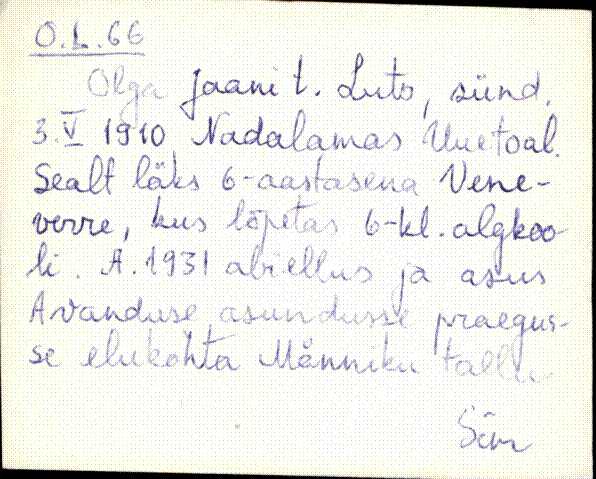 O.L.66
Olga Jaani t. Luts, sünd.
3.V 1910 Nadalamas Uuetoal.
Sealt läks 6-aastasena Vene-
verre, kus lõpetas 6-kl. algkoo-
li. A. 1931 abiellus ja asus
Avanduse asundusse praegus-
se elukohta Männiku tallu